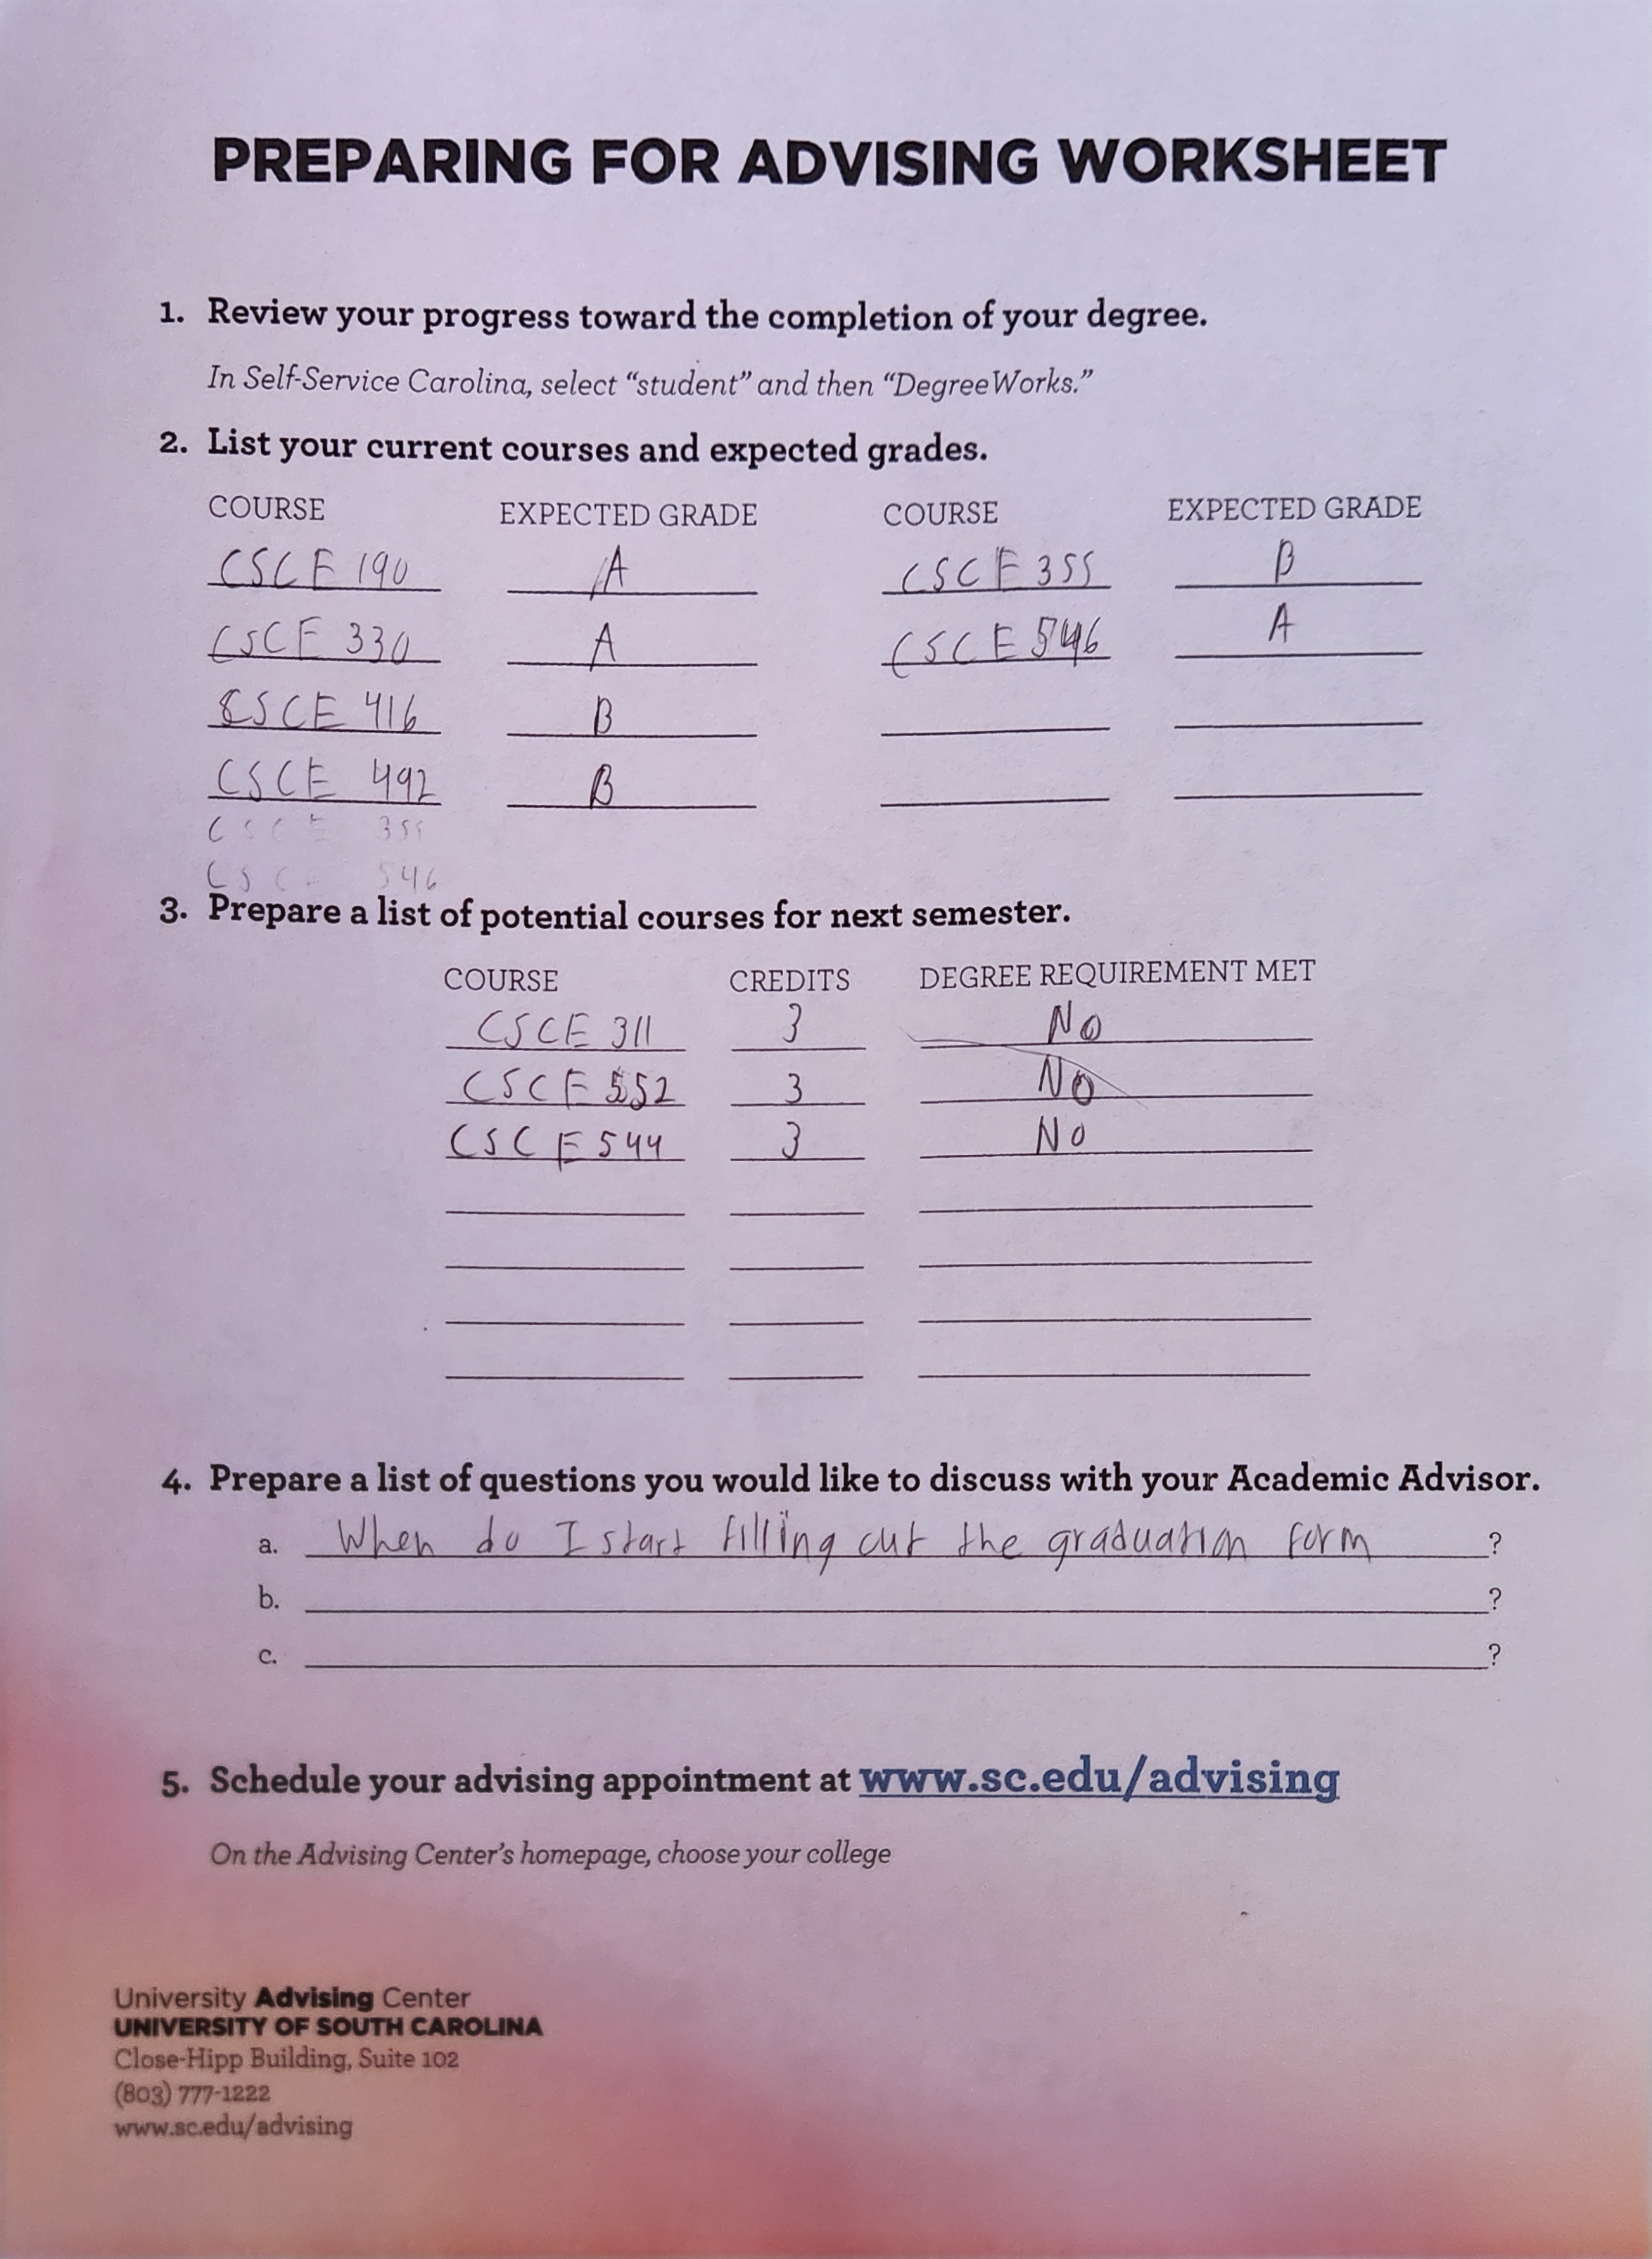 PREPARING FOR ADVISING WORKSHEET
1. Review your progress toward the completion of your degree.
In Self-Service Carolina, select “student” and then “DegreeWorks.”
2. List your current courses and expected grades.
COURSE EXPECTED GRADE COURSE EXPECTED GRADE
CSCE 190 A CSCE 355 B
CSCE 330 A CSCE 546 A
CSCE 416 B
CSCE 492 B
CSCE 355
CSCE 546
3. Prepare a list of potential courses for next semester.
COURSE CREDITS DEGREE REQUIREMENT MET
CSCE 311 3 No
CSCE 552 3 No
CSCE 544 3 No
4. Prepare a list of questions you would like to discuss with your Academic Advisor.
a. When do I start filling out the graduation form ?
b. ?
c. ?
5. Schedule your advising appointment at www.sc.edu/advising
On the Advising Center’s homepage, choose your college
University Advising Center
UNIVERSITY OF SOUTH CAROLINA
Close-Hipp Building, Suite 102
(803) 777-1222
www.sc.edu/advising